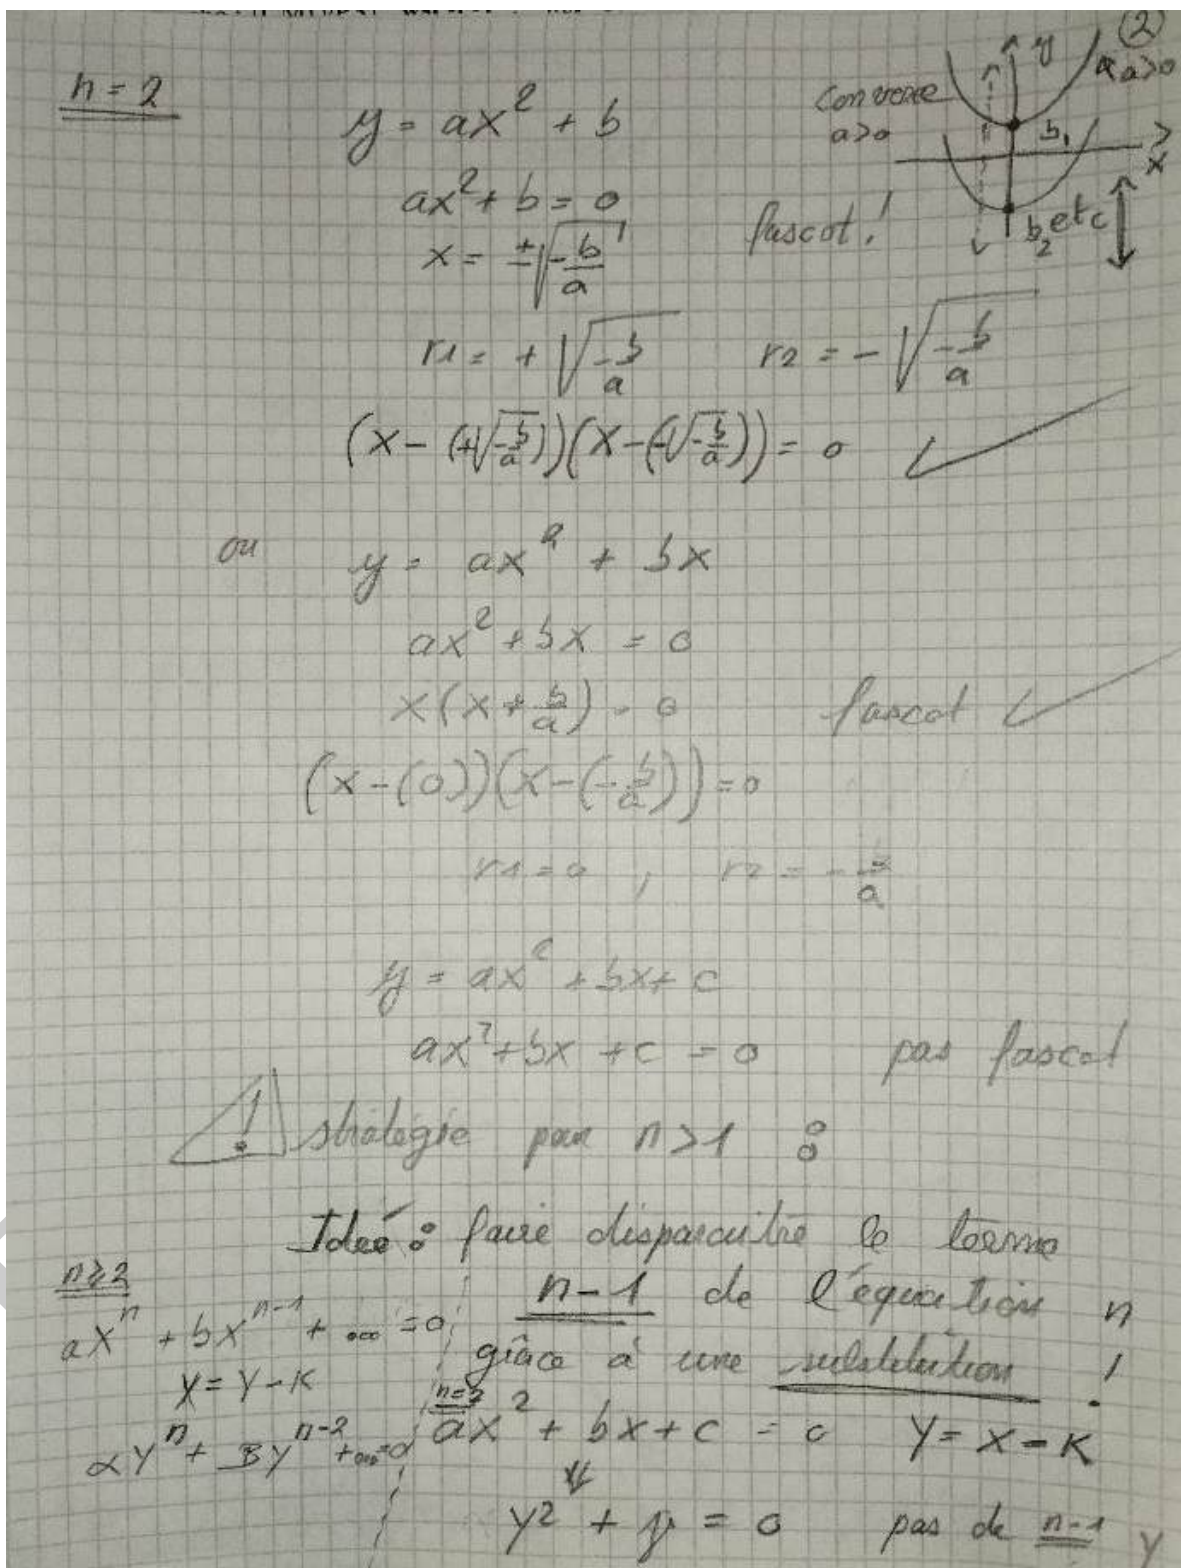 ②
n = 2
y = ax² + b
convexe
a>0
y
a>0
b₁
x
b₂ etc
ax² + b = 0
fascot !
x = ±√(-b/a)
r1 = + √(-b/a)    r2 = - √(-b/a)
(x - (+√(-b/a)))(x - (-√(-b/a))) = 0
ou    y = ax² + bx
ax² + bx = 0
x(x + b/a) = 0    fascot
(x - (0))(x - (-b/a)) = 0
r1 = 0 , r2 = - b/a
y = ax² + bx + c
ax² + bx + c = 0    pas fascot
! stratégie pour n > 1 :
Idée : faire disparaitre le terme
n-1 de l'équation n
grâce à une substitution !
n≥2
axⁿ + bxⁿ⁻¹ + ... = 0
x = y - k
αyⁿ + βyⁿ⁻² + ... = 0
n=2
ax² + bx + c = 0    y = x - k
y² + γ = 0    pas de n-1 y